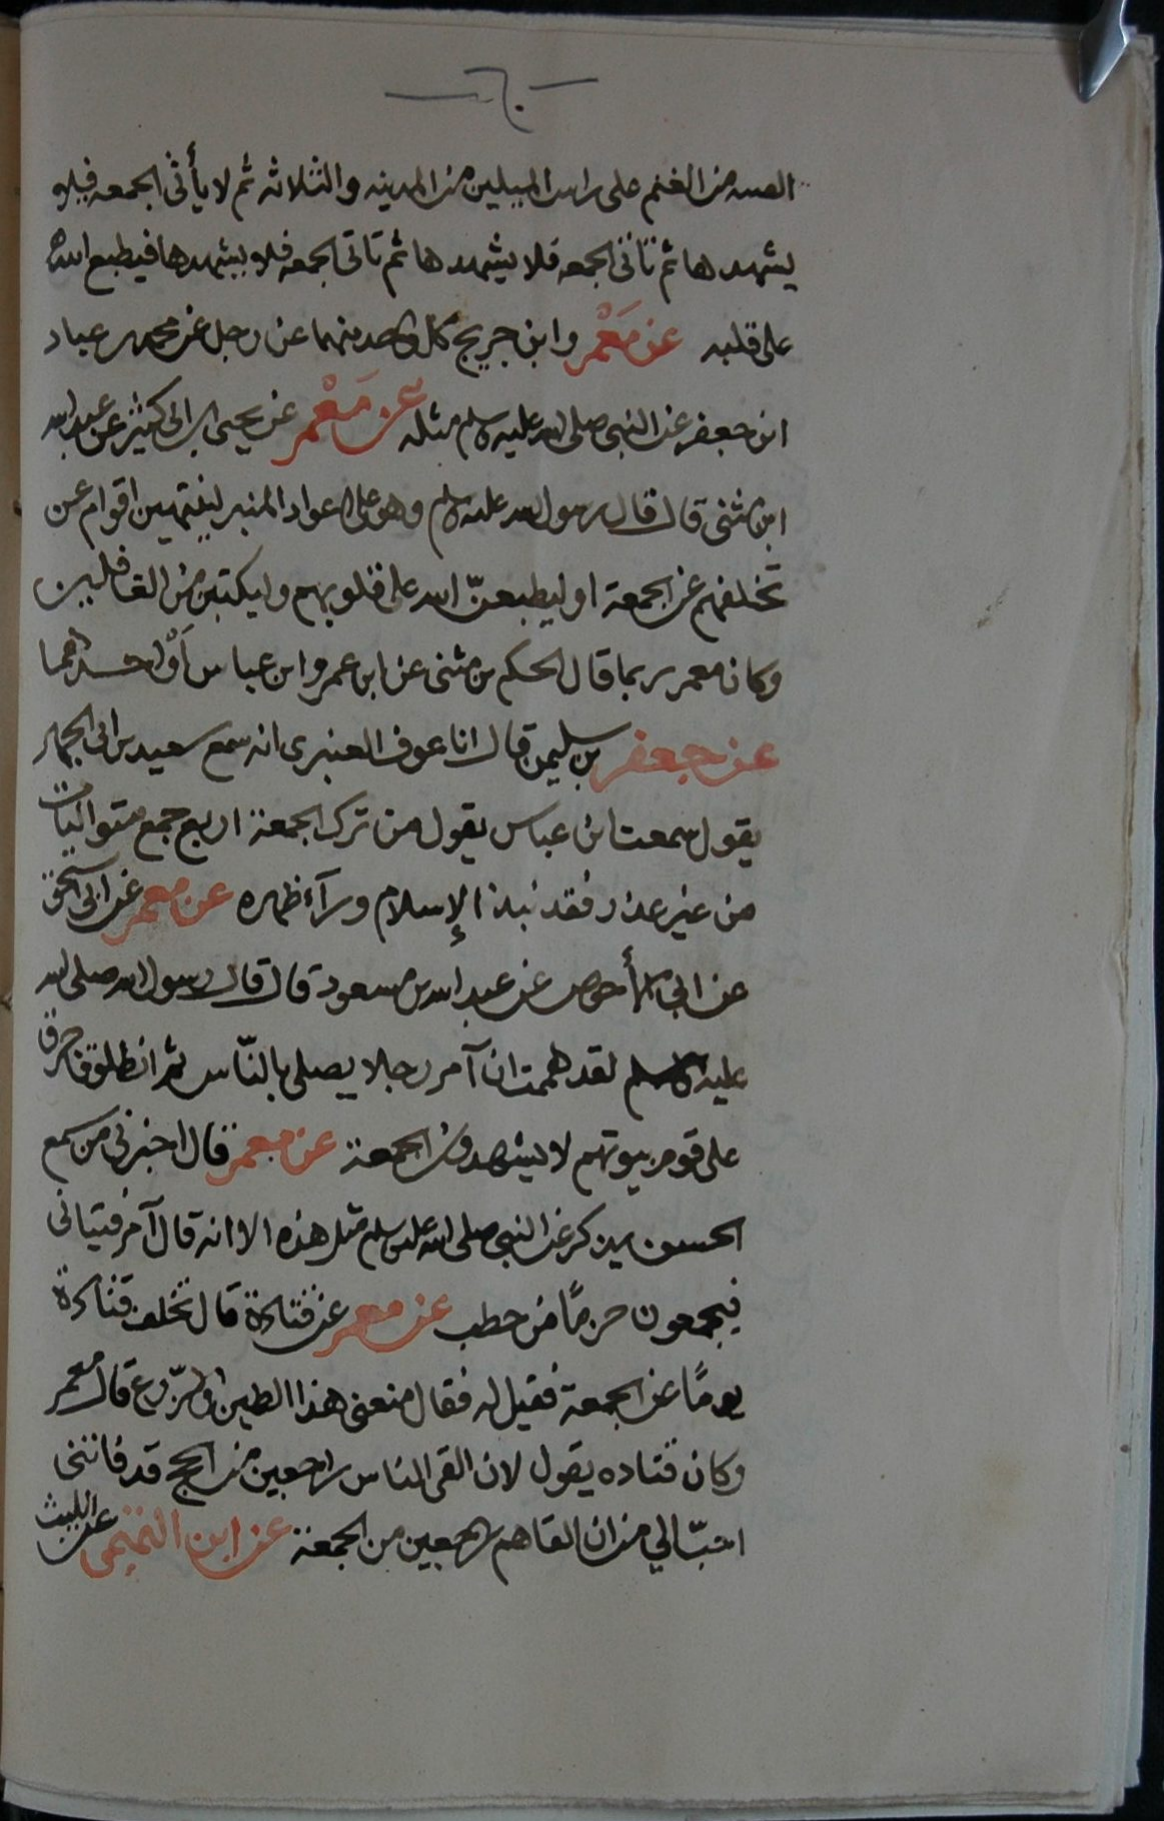 -٦٠-
الصبه من الغنم على راس الميلين من المدينه والثلاثه ثم لا يأتى الجمعه فلا
يشهدها ثم تاتى الجمعه فلا يشهدها ثم تاتى الجمعه فلا يشهدها فيطبع الله
على قلبه عن مَعْمر وابن جريج كل واحد منهما عن رجل عن محمد بن عباد
ابن جعفر عن النبى صلى الله عليه وسلم مثله عن مَعْمر عن يحيى بن ابى كثير عن عبد الله
ابن مثنى قال قال رسول الله عليه وسلم وهو على اعواد المنبر لينتهين اقوام عن
تخلفهم عن الجمعة او ليطبعنّ الله على قلوبهم وليكتبن من الغافلين
وكان معمر ربما قال الحكم بن مثنى عن ابن عمر وابن عباس أوْ احدهما
عن جعفر بن سليمن قال انا عوف العنبرى انه سمع سعيد بن ابى
يقول سمعت ابن عباس يقول من ترك الجمعة اربع جمع متواليات
من غير عذر فقد نبذ الإسلام ورآء ظهره عن معمر عن ابى اسحق
عن ابى الأحوص عن عبد الله بن مسعود قال قال رسول الله صلى الله
عليه وسلم لقد هممت ان آمر رجلا يصلى بالنّاس ثم انطلق فاحرق
على قوم بيوتهم لا يشهدون الجمعة عن معمر قال اخبرنى من سمع
الحسن يذكر عن النبى صلى الله عليه وسلم مثل هذه الا انه قال آمر فتيانى
فيجمعون حزمًا من حطب عن معمر عن قتادة قال تخلف قتادة
يومًا عن الجمعة فقيل له فقال منعنى هذا الطين والرّدع قال معمر
وكان قتاده يقول لان القى الناس راجعين من الحج قد فاتنى
احبّ الي من ان القاهم راجعين من الجمعة عن ابن التيمى عن الليث